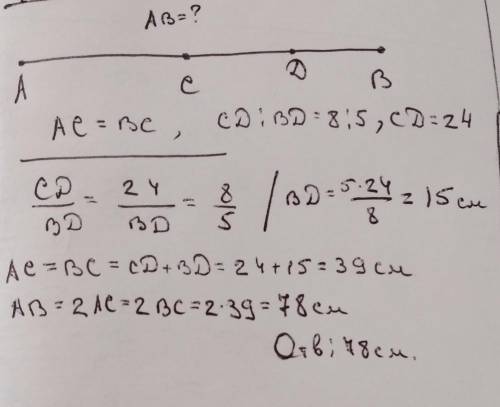 AB=?
A C D B
AC = BC, CD:BD=8:5, CD=24
CD/BD = 24/BD = 8/5 / BD= 5·24/8 = 15 см
AC=BC=CD+BD=24+15=39 см
AB=2AC=2BC=2·39=78 см
Отв: 78 см.